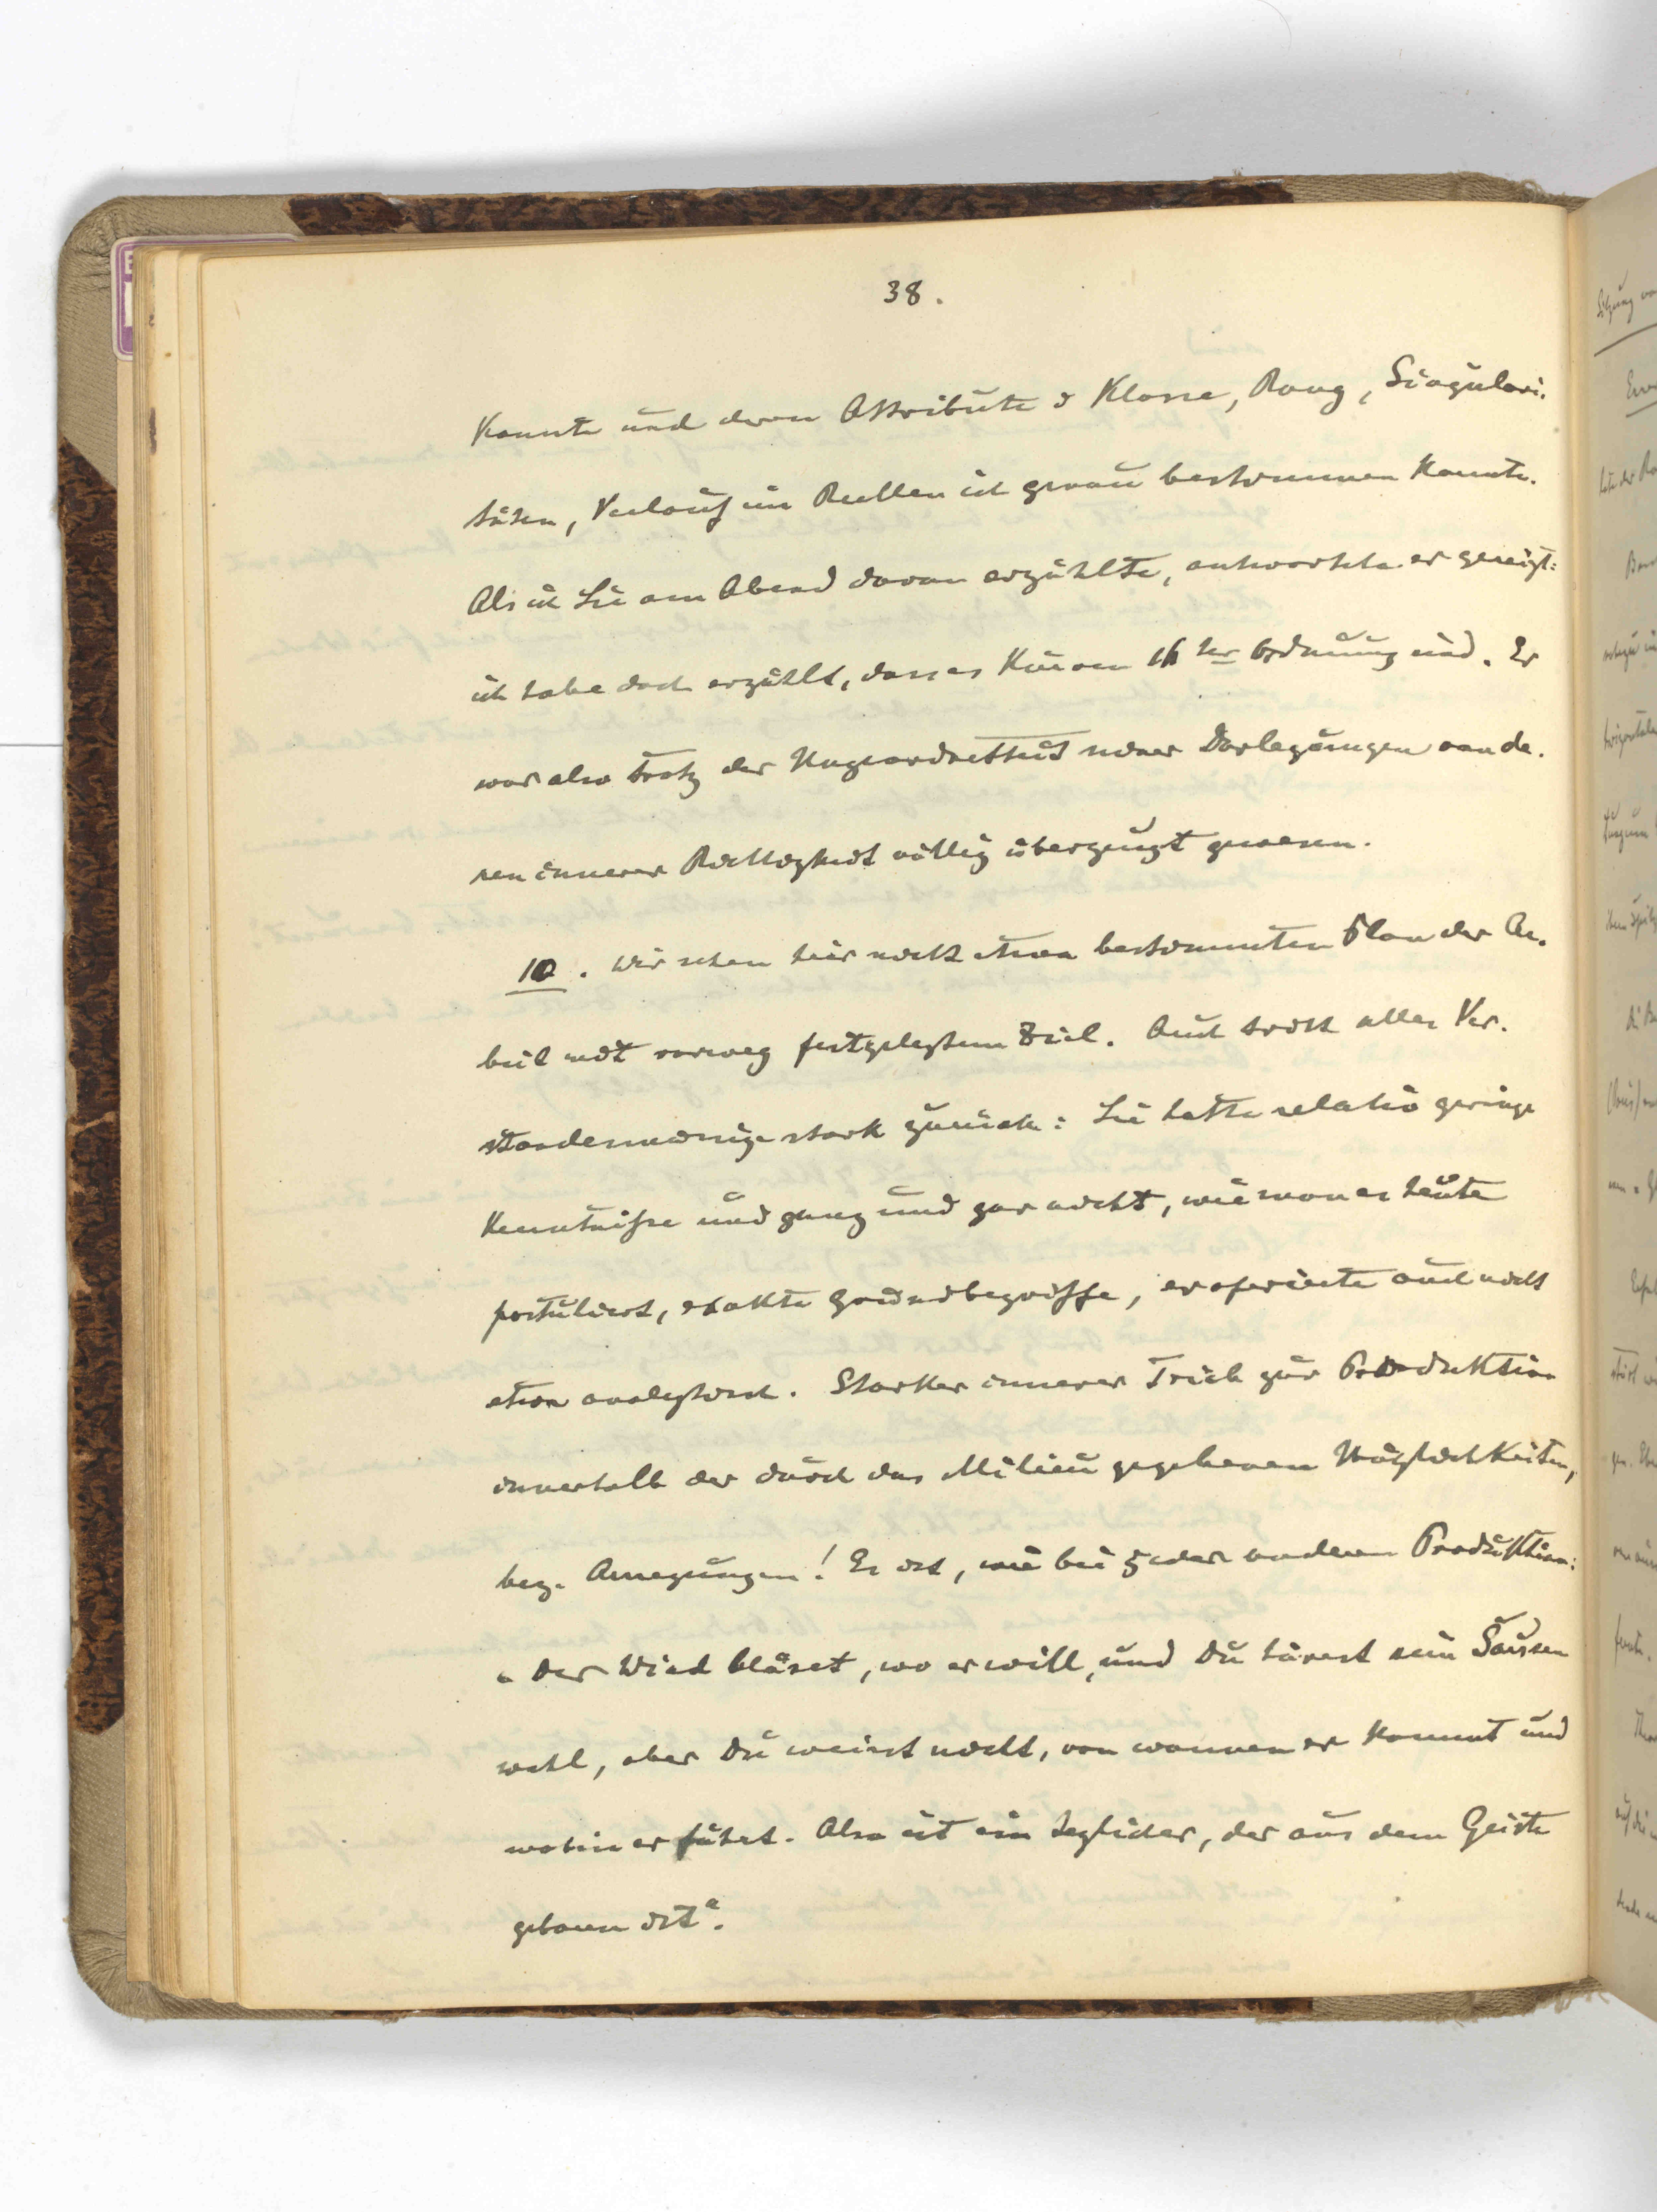 38.
kannte und deren Attribute: Klasse, Rang, Singulari-
täten, Verlauf im Reellen ich genau bestimmen konnte.
Als ich Lie am Abend davon erzählte, antwortete er gereizt:
ich habe doch erzählt, dass es Kurven 16 ter Ordnung sind. Er
war also trotz der Ungeordnetheit seiner Darlegungen von de-
ren innerer Richtigkeit völlig überzeugt gewesen.
10. Wir sehen hier nicht etwa bestimmten Plan der Ar-
beit mit vorweg festgelegtem Ziel. Auch tritt alles Ver-
standesmässige stark zurück: Lie hatte relativ geringe
Kenntnisse und ganz und gar nicht, wie man es heute
postuliert, exakte Grundbegriffe, er operierte auch nicht
etwa analytisch. Starker innerer Trieb zur Produktion
innerhalb der durch das Milieu gegebenen Möglichkeiten,
bez. Anregungen! Es ist, wie bei jeder anderen Produktion:
"Der Wind bläset, wo er will, und Du hörest sein Sausen
wohl, aber Du weisst nicht, von wannen er kommt und
wohin er fährt. Also ist ein jeglicher, der aus dem Geiste
geboren ist".
Sitzung